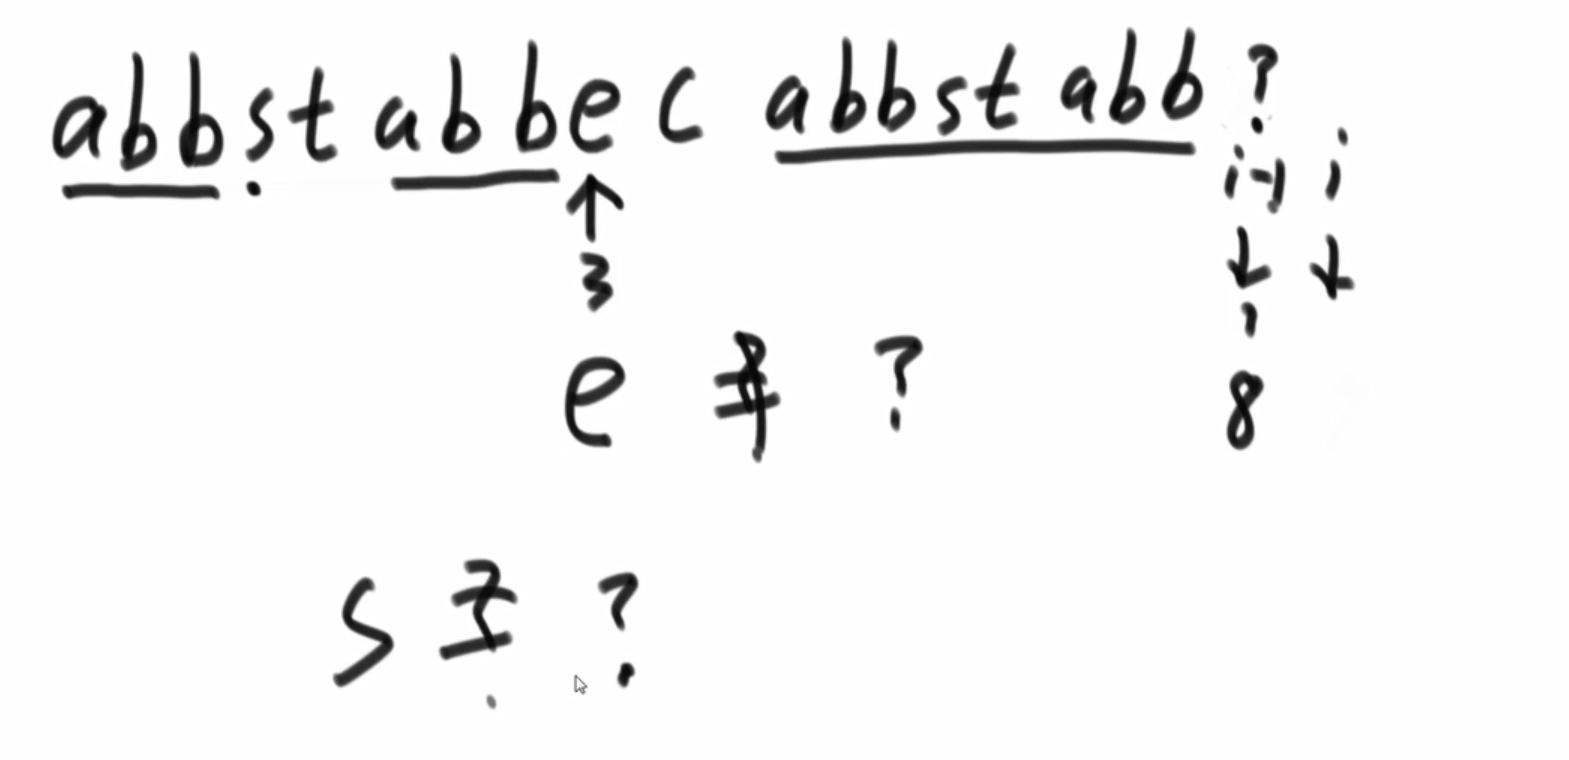 abbstabbec abbstabb?
i-1 i
3
e ≠ ? 8
s ≠ ?